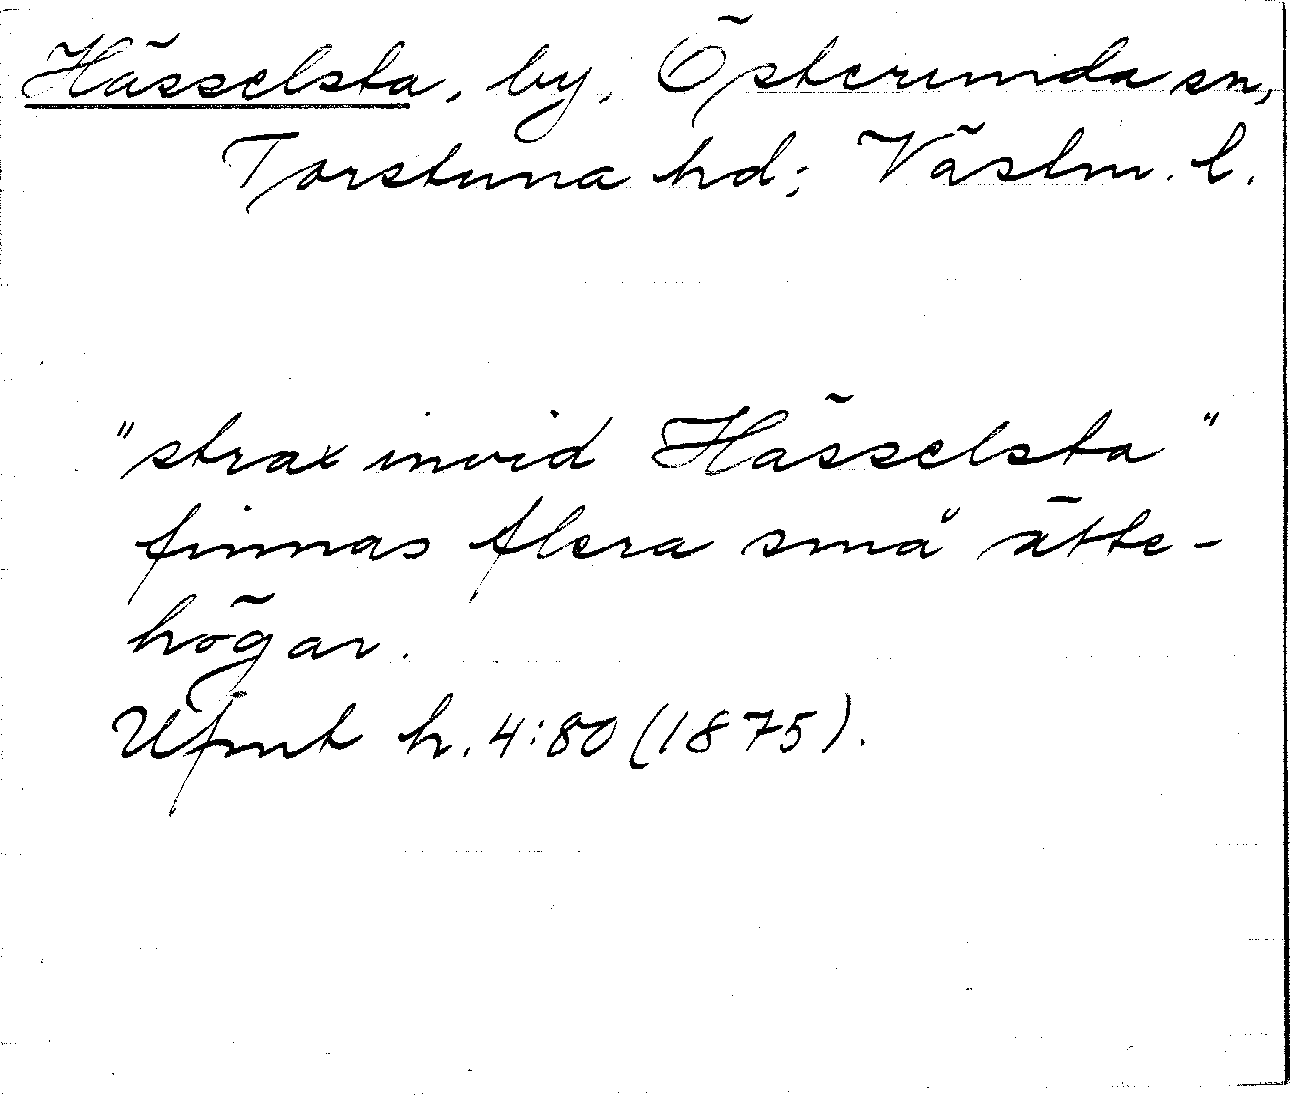 Hässelsta, by, Österunda sn,
Torstuna hd; Västm. l.
"strax invid Hässelsta"
finnas flera små ätte-
högar.
Ufmt h. 4:80 (1875).